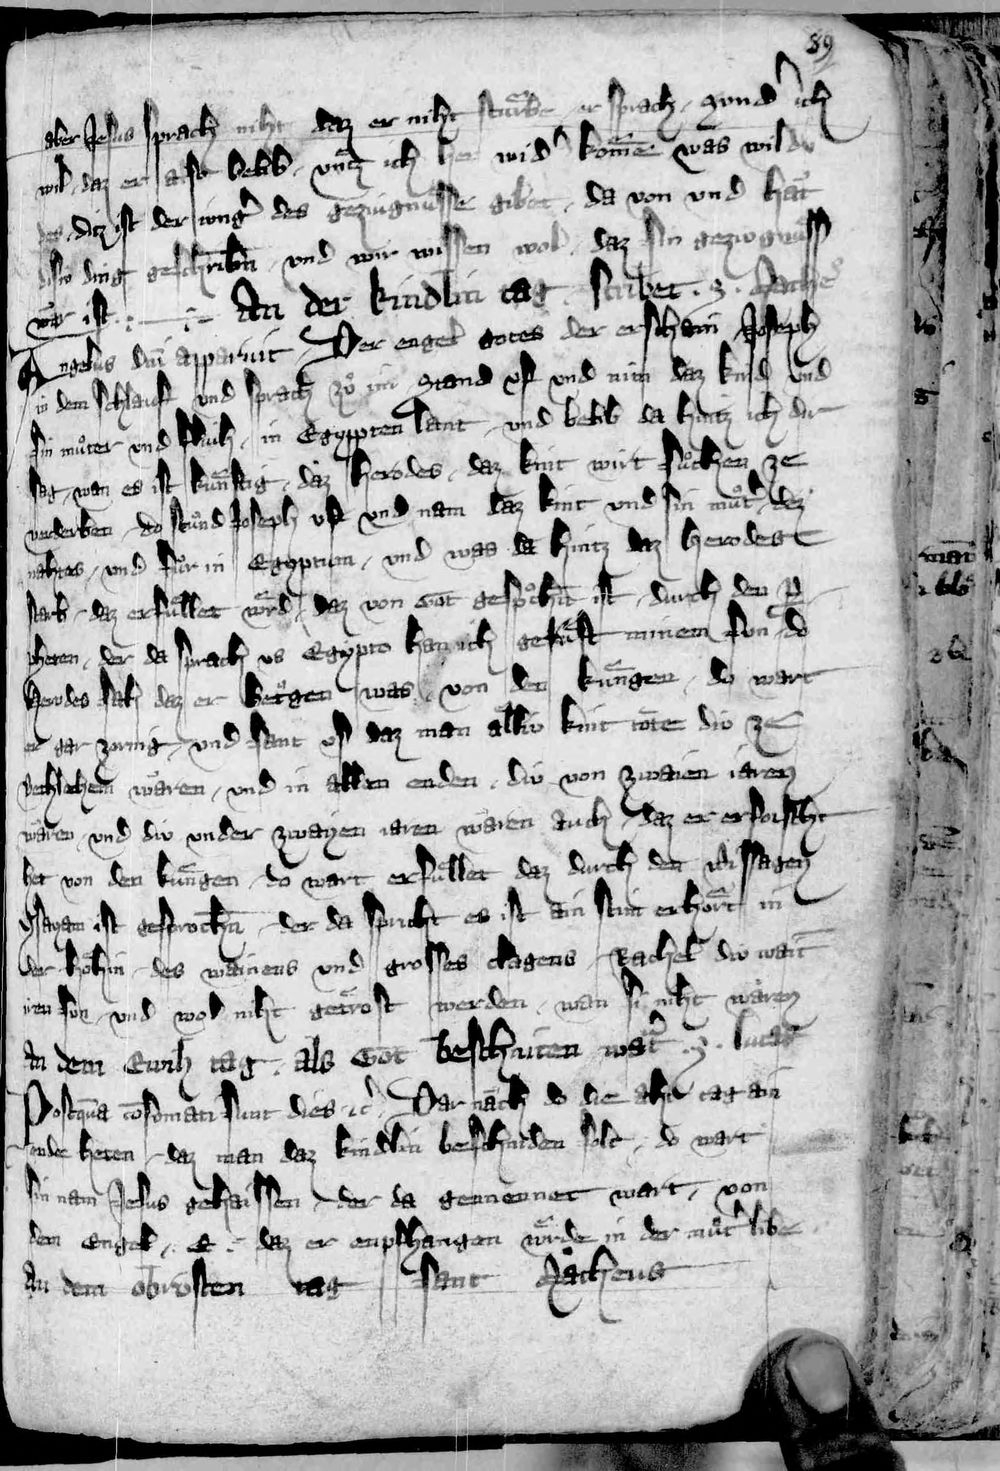 89
aber Jesus sprach niht daz er niht sturbe er sprach Sund' ich
wil daz er also belib vntz ich her wid' kome was wil du
des ditz ist der iung' des gezúgnússe gibet da von vnd hat
disiv ding geschribn vnd wir wissen wol daz sin gezúgnúss
war ist An der kindlin tag scribet S Mathe'
Angelus dni apparuit Der engel gotes der erschain Joseph
in dem schlauf vnd sprach zů im Stand vf vnd nim daz kind vnd
sin můter vnd fliuh in Egypten lant vnd belib da hintz ich dir
sag wan es ist kúnftig daz Herodes daz kint wirt sůchen ze
verderben do stůnd Joseph vf vnd nam daz kint vnd sin můt' dez
nahtes vnd fůr in Egyptum vnd was da hintz daz herodes
starb daz erfúllet wúrd daz von Got gesprochn ist durch den p
pheten der da sprach vs Egypto han ich geladt minem sun do
herodes sach daz er betrogen was von den kúngen do wart
er gar zornig vnd sant vs daz man alliv kint tote div ze
Bethlehem wåren vnd in allen enden div von zwaien iaren
wåren vnd div vnder zwayen iaren wåren auch daz er erforscht
het von den kúngen do wart erfúllet daz durch den wissagen
ysayam ist gesprochn der da spricht es ist ain stim erhort in
der hôhin des wainens vnd grosses clagens Rachel div wait
iren sun vnd wol niht getröst werden wan si niht wåren
An dem Ewih tag als Got beschniten wart S lucas
Postqua cosomati sunt dies ic' Dar nach do die aht tag ain
ende heten daz man daz kindlin beschniden solt do wart
sin nam Jesus gehaissen der da genennet wart von
dem Engel E daz er enpfhangen wúrde in der můt' libe
An dem obrosten tag sant Matheus